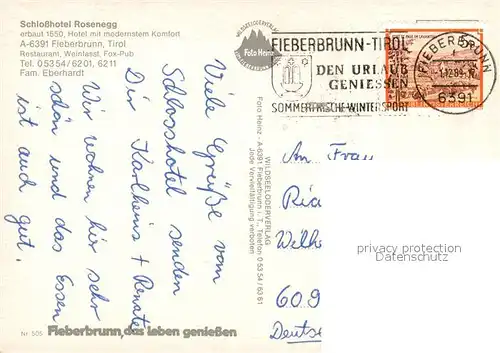 Schloßhotel Rosenegg
erbaut 1550, Hotel mit modernstem Komfort
A-6391 Fieberbrunn, Tirol
Restaurant, Weinfassl, Fox-Pub
Tel. 05354/6201, 6211
Fam. Eberhardt
Viele Grüße vom
Schlosshotel senden
Dir Karlheinz + Renate
Wir wohnen hir sehr
schön und das Essen
ist auch gut.
Nr 505
Fieberbrunn, das leben genießen
WILDSEELODERVERLAG
Foto Heinz
WILDSEELODERVERLAG
Foto Heinz - A-6391 Fieberbrunn i. T., Telefon 0 53 54 / 63 61
Jede Vervielfältigung verboten
FIEBERBRUNN-TIROL
DEN URLAUB
GENIESSEN
SOMMERFRISCHE-WINTERSPORT
FIEBERBRUNN
6391
5
An Frau
Ria
Wilhe
609
Deutsc
privacy protection
Datenschutz